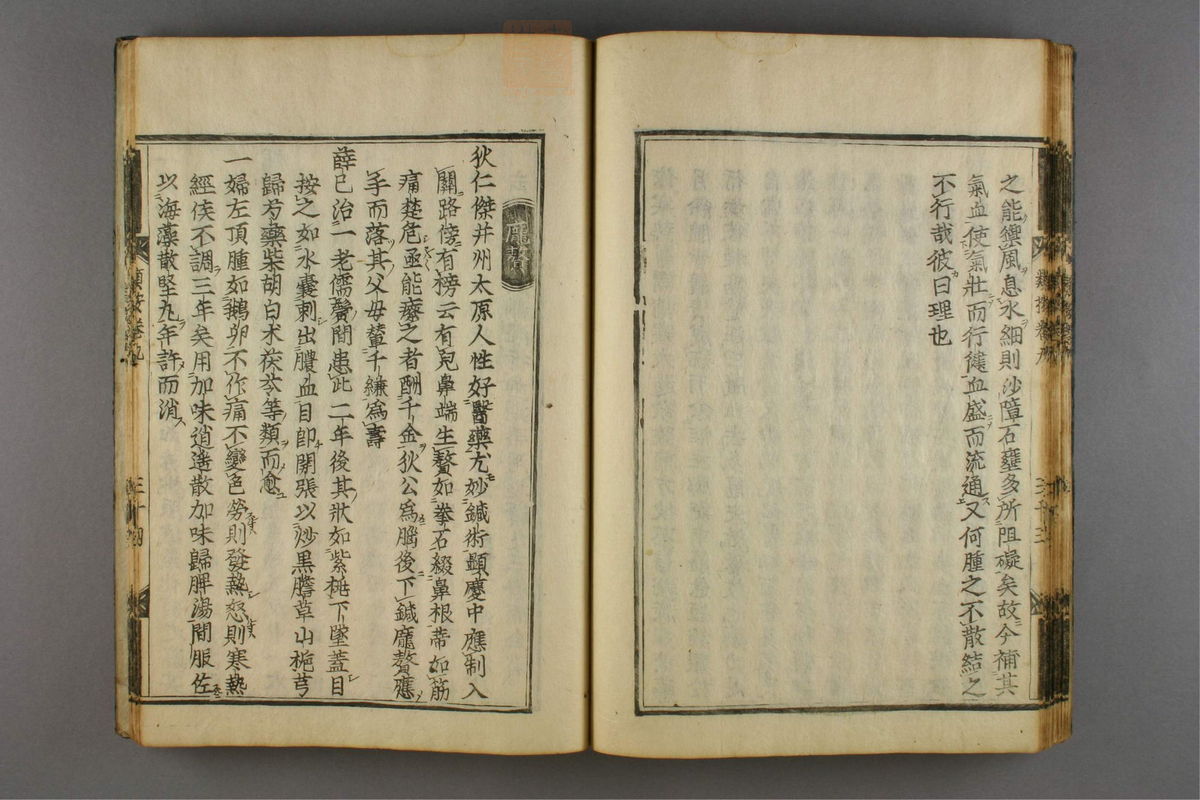 之能禦風息水細則沙障石壅多所阻礙矣故今補其
氣血使氣壯而行健血盛而流通又何腫之不散結之
不行哉彼曰理也
狄仁傑并州太原人性好醫藥尤妙鍼術顯慶中應制入
關路傍有榜云有兒鼻端生贅如拳石綴鼻根蒂如筯
痛楚危亟能療之者酬千金狄公為腦後下鍼疣贅應
手而落其父母輦千縑為壽
薛己治一老儒鬢間患此二年後其狀如紫桃下墜蓋目
按之如水囊刺出膿血目即開張以炒黑膽草山梔芎
歸芍藥柴胡白朮茯苓等類而愈
一婦左項腫如鵝卵不作痛不變色勞則發熱怒則寒熱
經候不調三年矣用加味逍遙散加味歸脾湯間服佐
以海藻散堅九年許而消